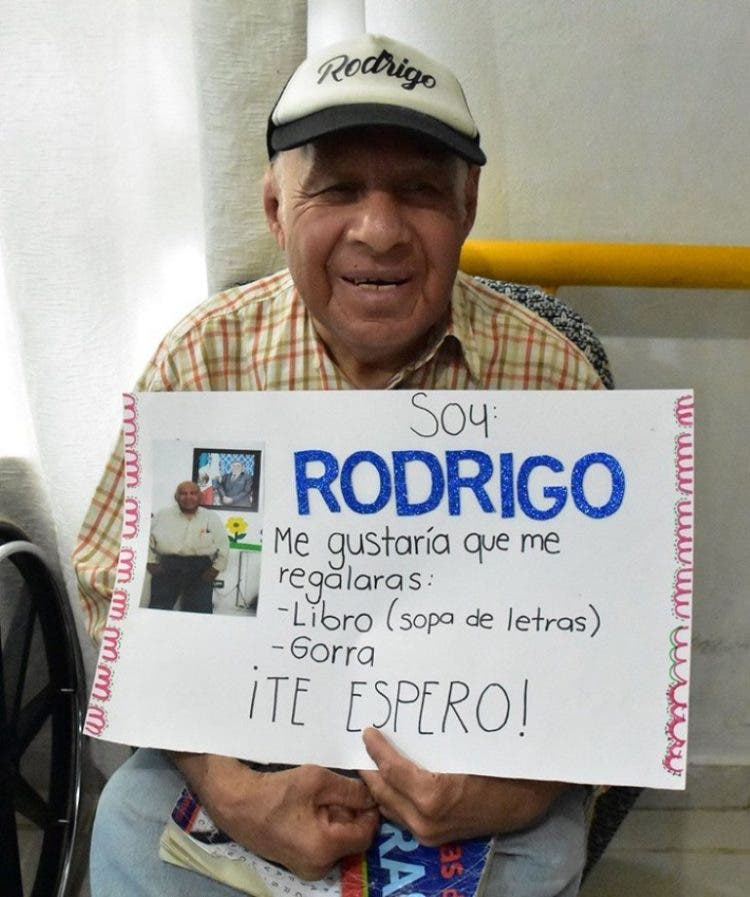 Rodrigo
Soy:
RODRIGO
Me gustaría que me
regalaras:
-Libro (sopa de letras)
-Gorra
¡TE ESPERO!